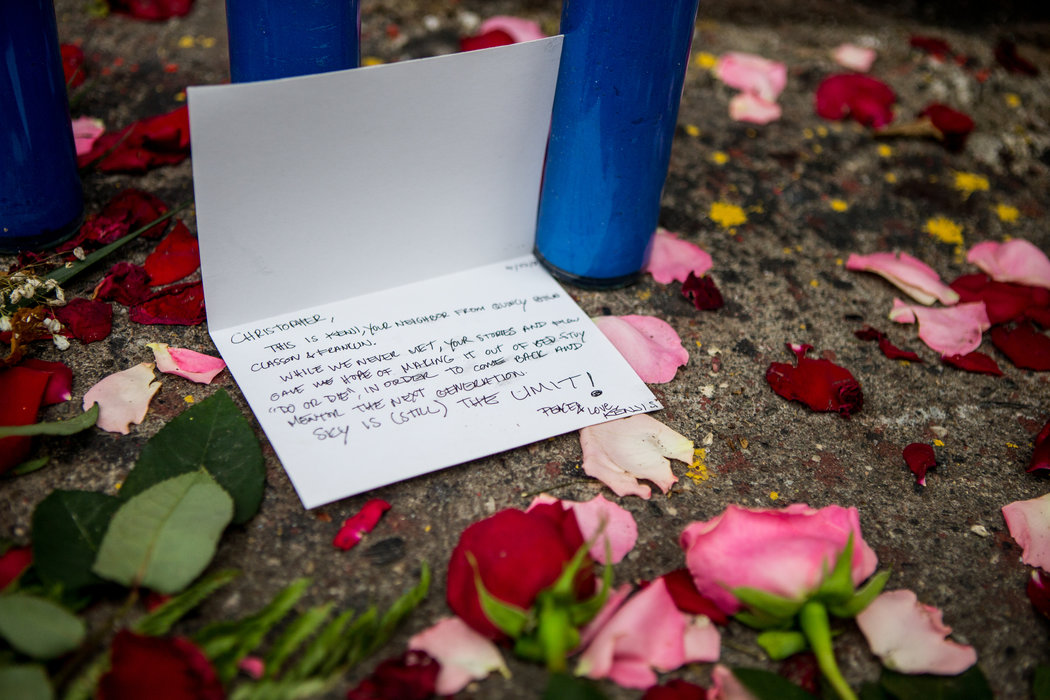 CHRISTOPHER,
THIS IS KENJI, YOUR NEIGHBOR FROM QUINCY BTWN
CLASSON & FRANKLIN.
WHILE WE NEVER MET, YOUR STORIES AND FLOW
GAVE ME HOPE OF MAKING IT OUT OF BED-STUY
"DO OR DIE", IN ORDER TO COME BACK AND
MENTOR THE NEXT GENERATION.
SKY IS (STILL) THE LIMIT!
PEACE & LOVE,
KENJI S